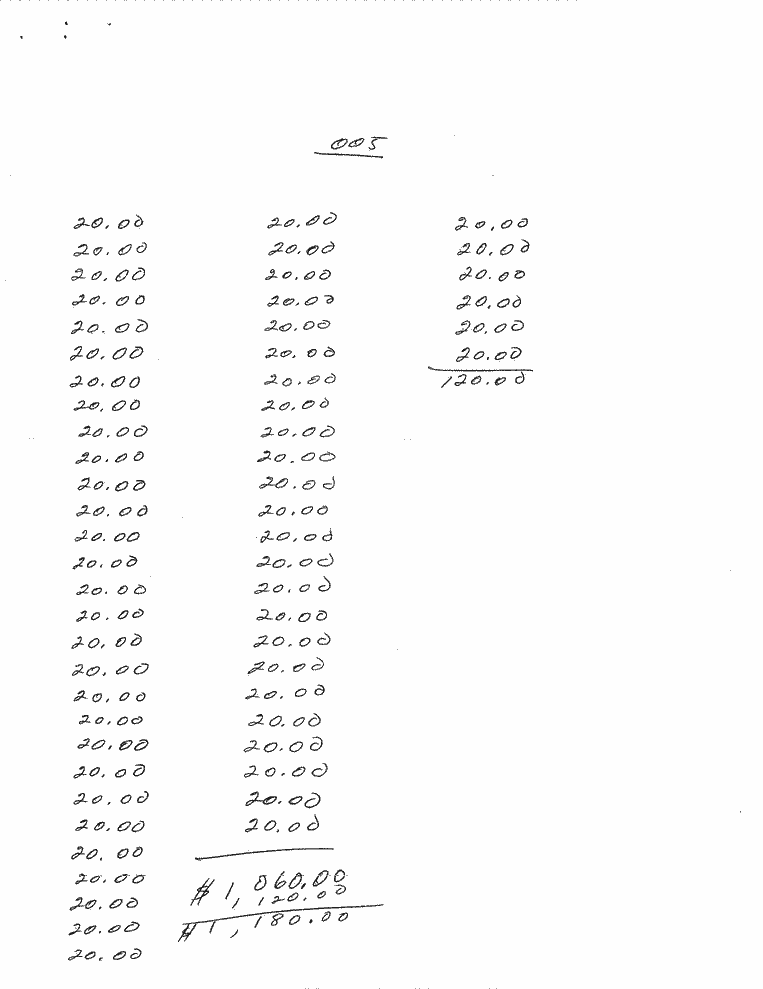 005
20.00 20.00 20.00
20.00 20.00 20.00
20.00 20.00 20.00
20.00 20.00 20.00
20.00 20.00 20.00
20.00 20.00 20.00
20.00 20.00 120.00
20.00 20.00
20.00 20.00
20.00 20.00
20.00 20.00
20.00 20.00
20.00 20.00
20.00 20.00
20.00 20.00
20.00 20.00
20.00 20.00
20.00 20.00
20.00 20.00
20.00 20.00
20.00 20.00
20.00 20.00
20.00 20.00
20.00 20.00
20.00
20.00 $1,060.00
20.00 , 120.00
20.00 $1,180.00
20.00